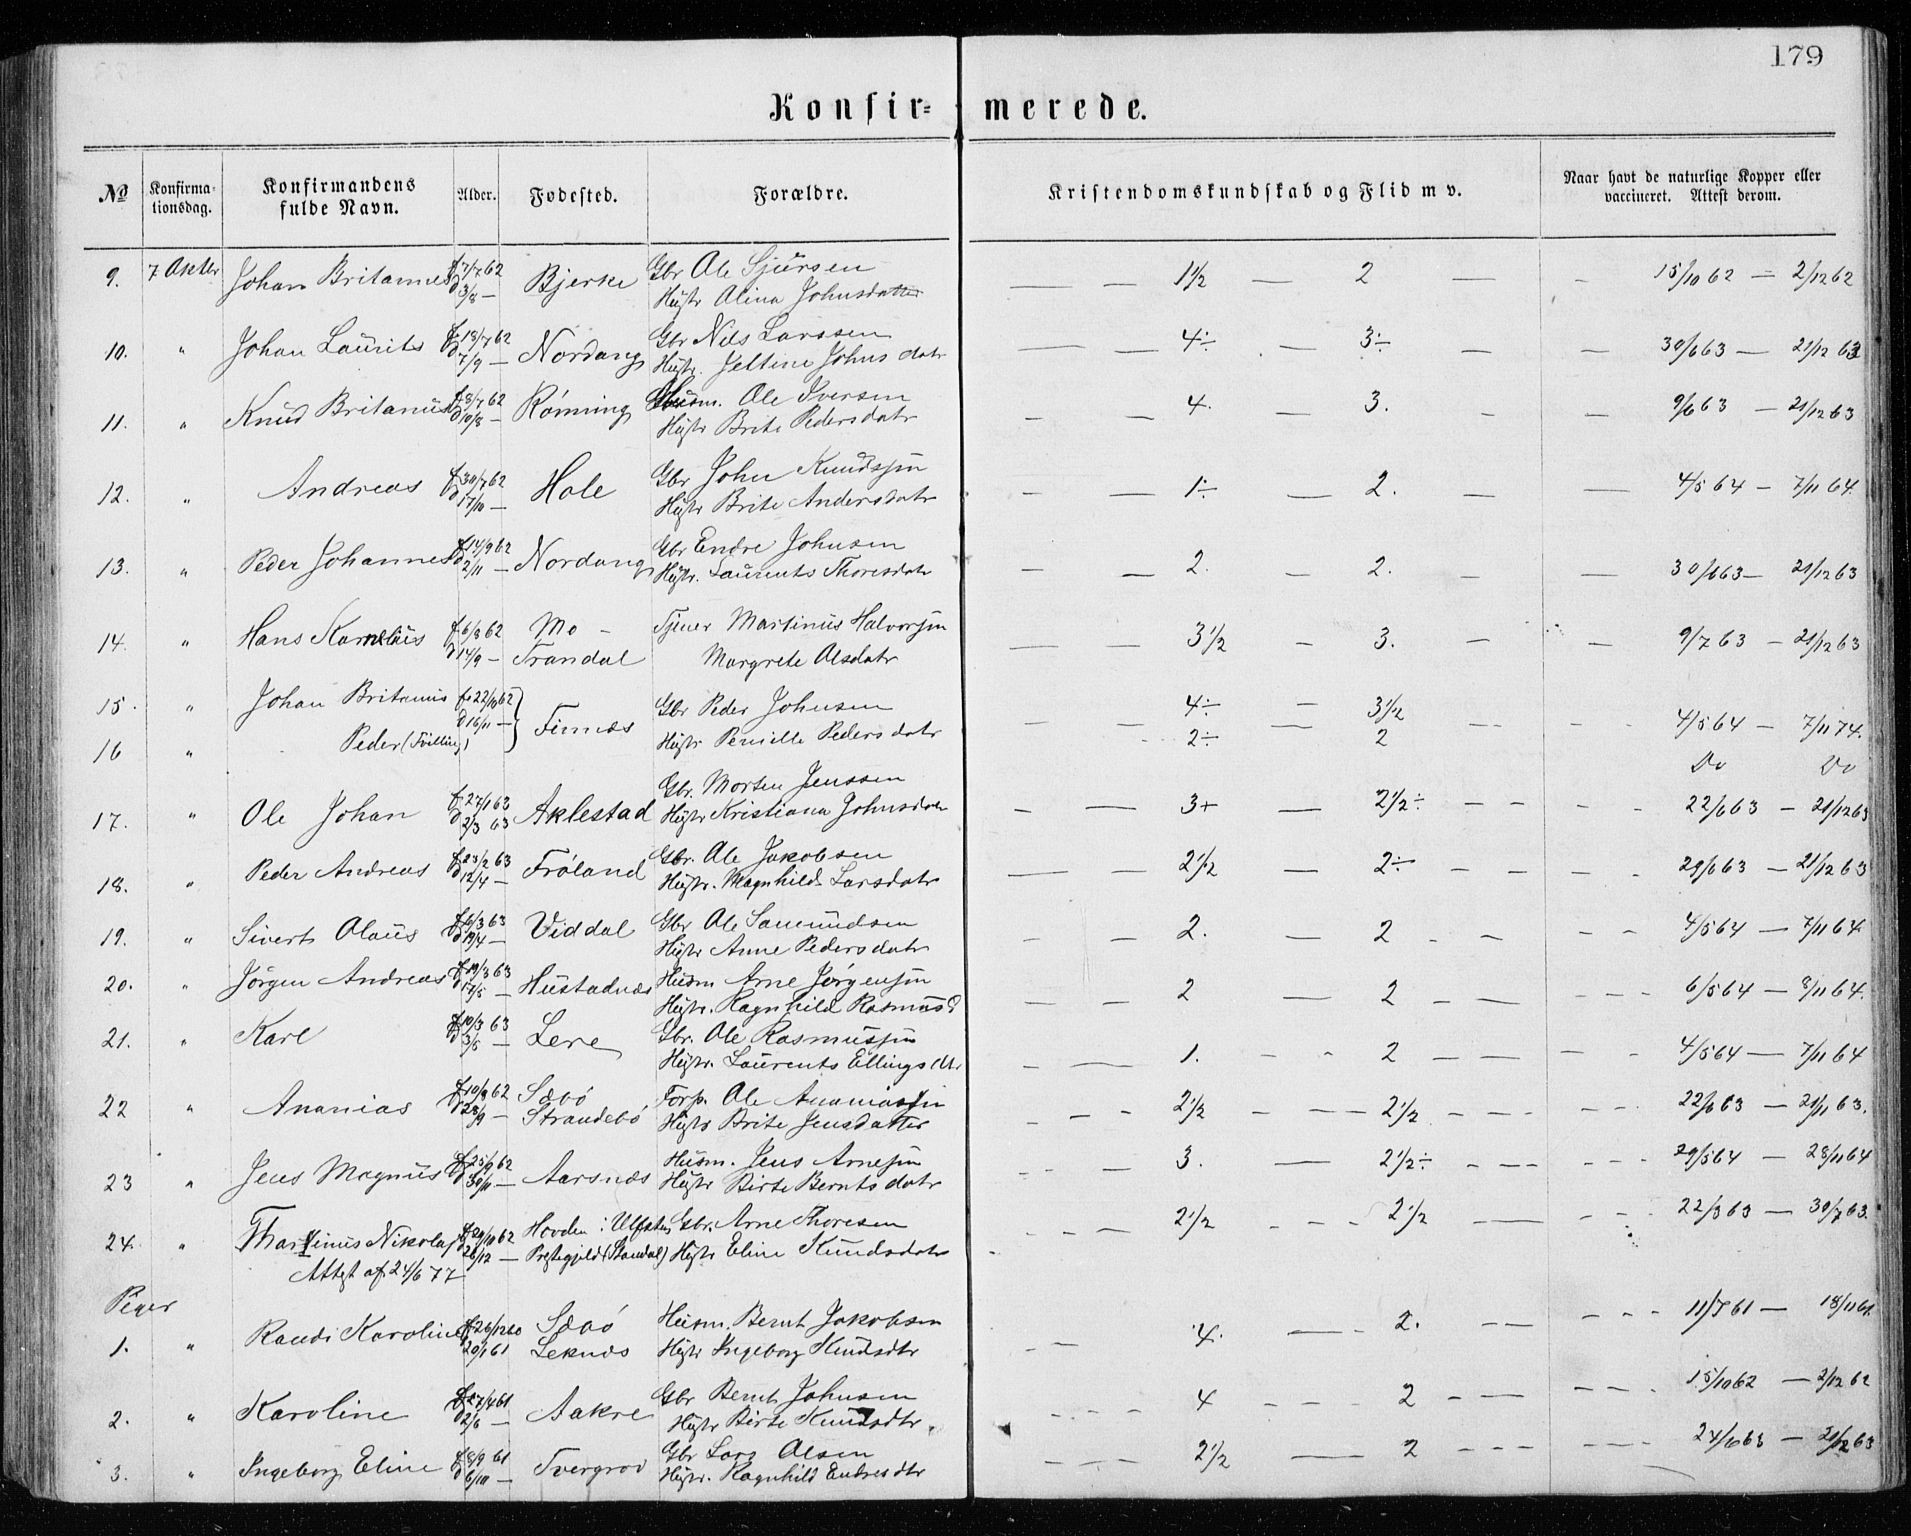 179
Konfir= merede.
№ Konfirma-tionsdag. Konfirmandens fulde Navn. Alder. Fødested. Forældre. Kristendomskundskab og Flid m v. Naar havt de naturlige Kopper eller vaccineret. Attest derom.
9. 7 Okter Johan Britannus f 7/7 62 Bjerke Gbr Ole Sjursen — — 1½ — 2 — - 15/10 62 — 2/12 62
d 3/8 — Hustr Olina Johnsdatter
10. " Johan Laurits f 18/7 62 Nordang Gbr Nils Larssen — — 4÷ — 3÷ — — 30/6 63 — 21/12 63
d 7/9 — Hustr. Jettine Johnsdatr
11. " Knud Britanus f 8/7 62 Rønning Husm. Ole Iversen — — 4. — 3. - — 9/6 63 — 21/12 63
d 10/8 — Hustr Brite Pedersdatr
12. " Andreas f 30/7 62 Hole Gbr John Knudsen — — 1÷ — 2. — — 4/5 64 — 7/11 64.
d 17/10 — Hustr Brite Andersdatr
13. " Peder Johannes f 14/9 62 Nordang Gbr Endre Johnsen — — 2. — 2. — — 30/6 63 — 21/12 63
d 2/11 — Hustr. Laurents Thoresdatr
14. " Hans Kornelius f 6/8 62 Mo - Tjener Martinus Halvorsen — — 3½ — 3. — — 9/7 63 — 21/12 63
d 14/9 — Trandal Margrete Olsdatr
15. " Johan Britanus f. 22/10 62 Finnæs Gbr Peder Johnsen — — 4÷ — 3½ 4/5 64 — 7/11 74.
d 16/11 —
16 " Peder (Tvilling) Hustr Pernille Pedersdatr 2÷ 2 Do Do
17. " Ole Johan f 27/1 63 Aklestad Gbr. Morten Jenssen — — 3+ — 2½÷ - - - - 22/6 63 — 21/12 63
d 2/3 63 Hustr Kristiana Johnsdatr
18. " Peder Andreas f 23/2 63 Frøland Gbr. Ole Jakobsen — — 2½ — 2÷ - - - - 29/6 63 — 21/12 63
d 12/4 — Hustr. Magnhild Larsdatr
19. " Sivert Olaus f 6/3 63 Viddal Gbr Ole Samundsen — — 2. — 2 - — - - 4/5 64 — 7/11 64.
d 19/4 — Hustr Anne Pedersdatr
20. " Jørgen Andreas f 19/3 63 Hustadnæs Husm Arne Jørgensen — — 2 — 2 - — - - - 6/5 64 — 8/11 64.
d 17/5 — Hustr. Ragnhild Rasmusd
21. " Karl f 10/3 63 Lere Gbr. Ole Rasmussen — — 1. - - 2 — — - - 4/5 64 — 7/11 64
d 3/5 — Hustr. Laurents Ellingsdtr.
22 " Ananias f 10/8 62 Sæbø Forp. Ole Ananiassen — - - 2½ - — - 2½ - — - - - 22/6 63 — 21/11 63.
d 28/9 — Strandebø Hustr Brite Jensdatter
23 " Jens Magnus f 25/9 62 Aarsnæs Husm. Jens Arnesen - - — 3. — 2½÷ - — - - - 29/5 64 — 28/11 64
d 30/11 — Hustr Birte Berntsdatr
24. " Martinus Nikolaj f 20/10 62 Hovden i Ulfsten Gbr. Arne Thoresen - - — 2½ - - - 2½ — - - — 22/3 63 — 30/7 63.
d 26/12 — Prstegjeld (Standal) Hustr Eline Knudsdatr
Attest af 24/6 77
Piger
1. " Randi Karoline f 26/12 60 Sæbø Husm. Bernt Jakobsen - — 4. — - 2. - — - - - 11/7 61 — 18/11 61.
20/1 61 Leknæs Hustr Ingeborg Knudsdtr
2. " Karoline f 27/4 61 Aakre Gbr Bernt Johnsen - - - 4 - - - 2 - — - - - 15/10 62 — 2/12 62
d 2/6 — Hustr Birte Knudsdtr.
3. " Ingeborg Eline f 8/9 61 Tvergrov Gbr Lars Olsen - - — 2½ — 2 - - - - - - 24/6 63 — 21/12 63
d 6/10 — Hustr. Ragnhild Endresdtr